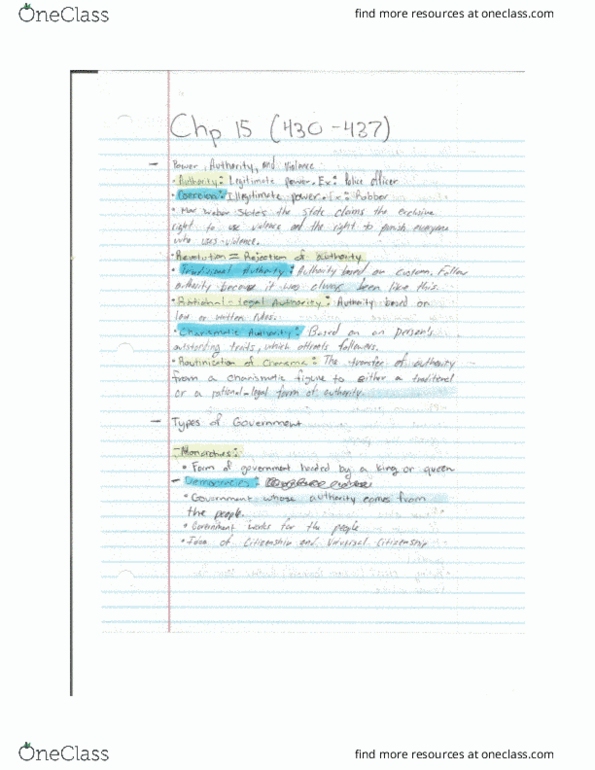 OneClass
find more resources at oneclass.com
Chp 15 (430-437)
- Power, Authority, and violence
• Authority: Legitimate power. Ex: Police officer
• Coercion: Illegitimate power. Ex: Robber
• Max Weber States the state claims the exclusive
right to use violence and the right to punish everyone
who uses violence.
• Revolution = Rejection of authority
• Traditional Authority: Authority based on custom. Follow
authority because it was always been like this.
• Rational-legal Authority: Authority based on
law or written rules.
• Charismatic Authority: Based on an person's
outstanding traits, which attracts followers.
• Routinization of Charisma: The transfer of authority
from a charismatic figure to either a traditional
or a rational-legal form of authority.
- Types of Government
- Monarchies:
• Form of government headed by a king or queen
- Democracies:
• Government whose authority comes from
the people.
• Government works for the people
• Idea of Citizenship and Universal Citizenship
OneClass
find more resources at oneclass.com